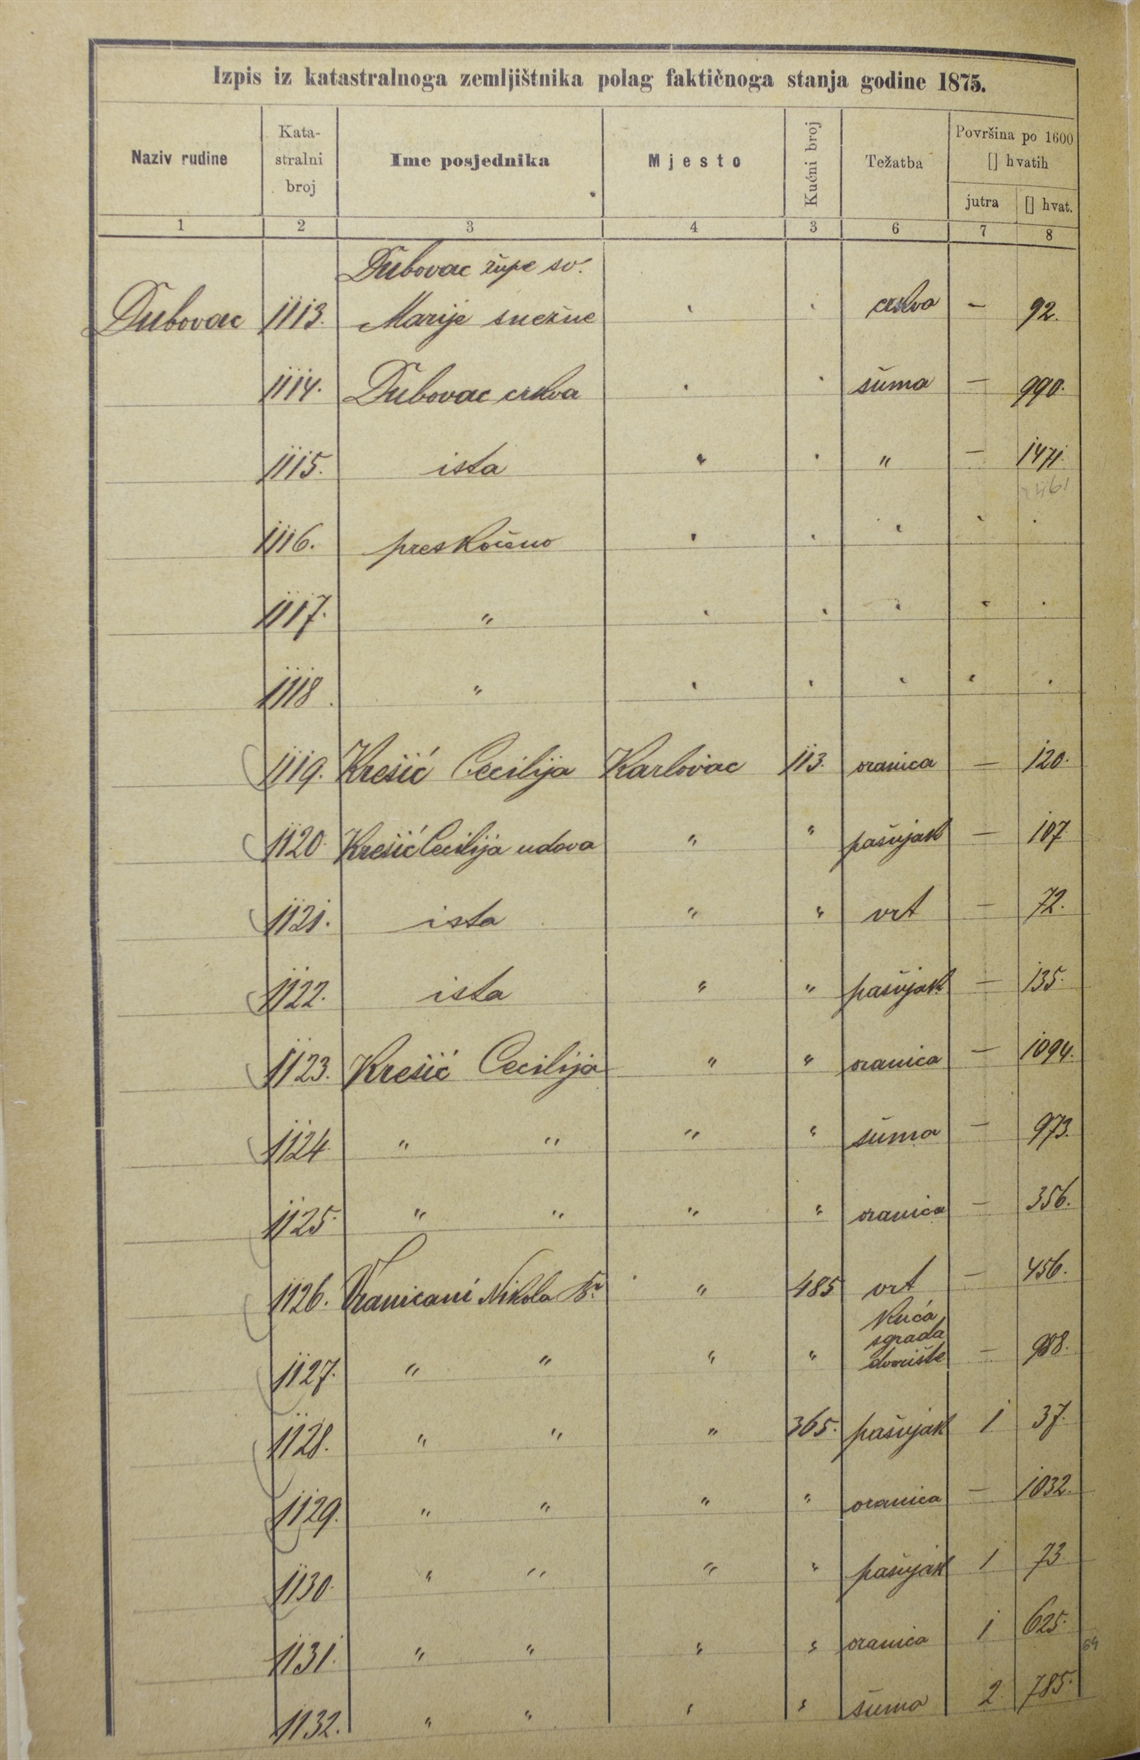 Izpis iz katastralnoga zemljištnika polag faktičnoga stanja godine 1875.
Naziv rudine | Kata-stralni broj | Ime posjednika | Mjesto | Kućni broj | Težatba | Površina po 1600 [] hvatih
jutra | [] hvat.
1 | 2 | 3 | 4 | 3 | 6 | 7 | 8
Dubovac župe sv.
Dubovac 1113. Marije snežne " " crskva — 92.
1114. Dubovac crskva " " šuma — 990.
1115. ista " " " — 1471.
1116. preskočeno " " " " "
1117. " " " " " "
1118. " " " " " "
1119. Krešić Cecilija Karlovac 113. oranica — 120.
1120. Krešić Cecilija udova " " pašnjak — 107
1121. ista " " vrt — 72.
1122. ista " " pašnjak — 135.
1123. Krešić Cecilija " " oranica — 1094.
1124. " " " " šuma — 973.
1125. " " " " oranica — 356.
1126. Vranicani Nikola Br. " 485 vrt — 456.
kuća
sgrada
1127. " " " " dvorište —
1128. " " " 365. pašnjak 1 37.
1129. " " " " oranica — 1032.
1130. " " " " pašnjak 1 73
1131. " " " " oranica 1 625.
1132. " " " " šuma 2 785.